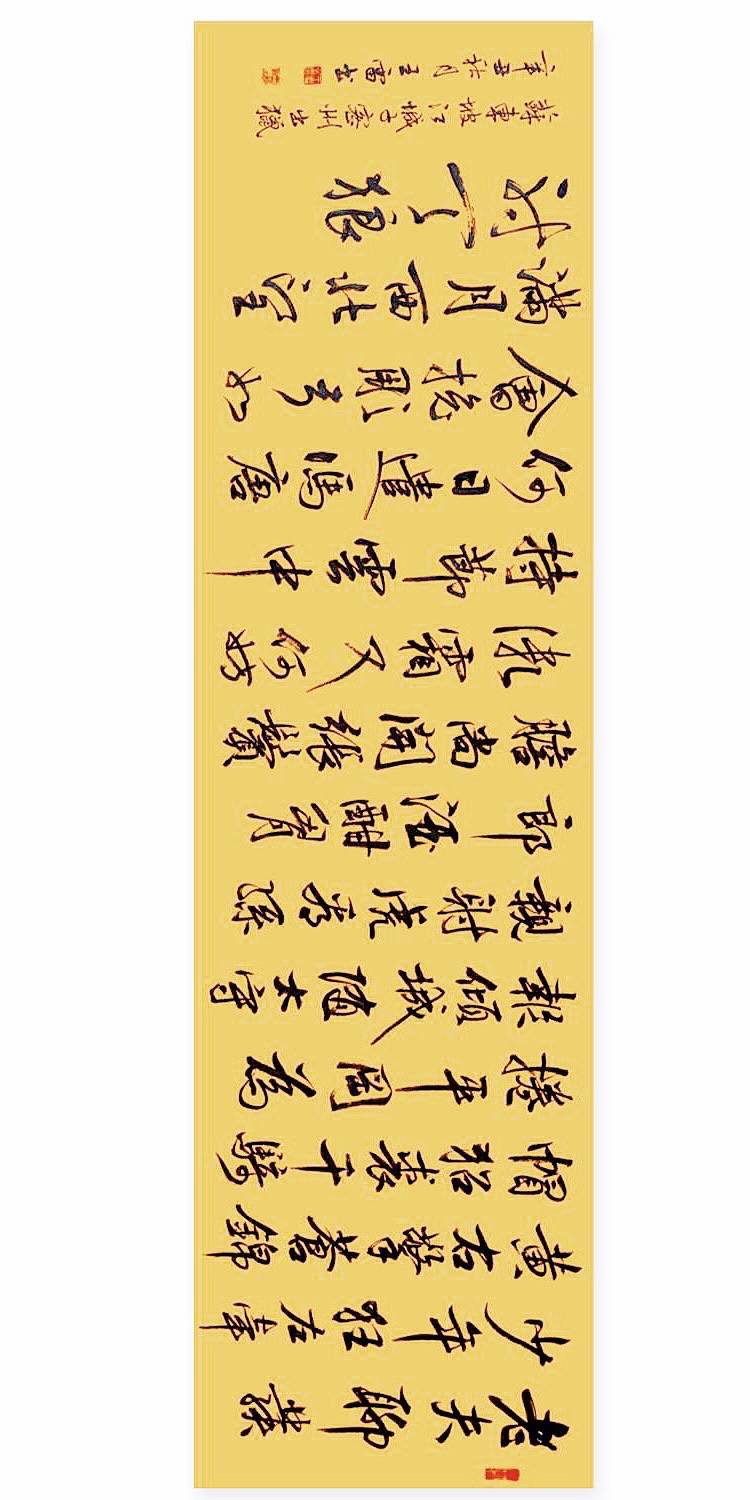 老夫聊發
少年狂左牽
黃右擎蒼錦
帽貂裘千騎
捲平岡為
報傾城隨太守
親射虎看孫
郎酒酣胸
膽尚開張鬢
微霜又何妨
持節雲中
何日遣馮唐
會挽雕弓如
滿月西北望
射天狼
蘇東坡江城子密州出獵
辛丑秋月王雷書